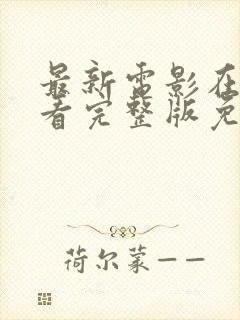 最新电影在
看完整版免
荷尔蒙——